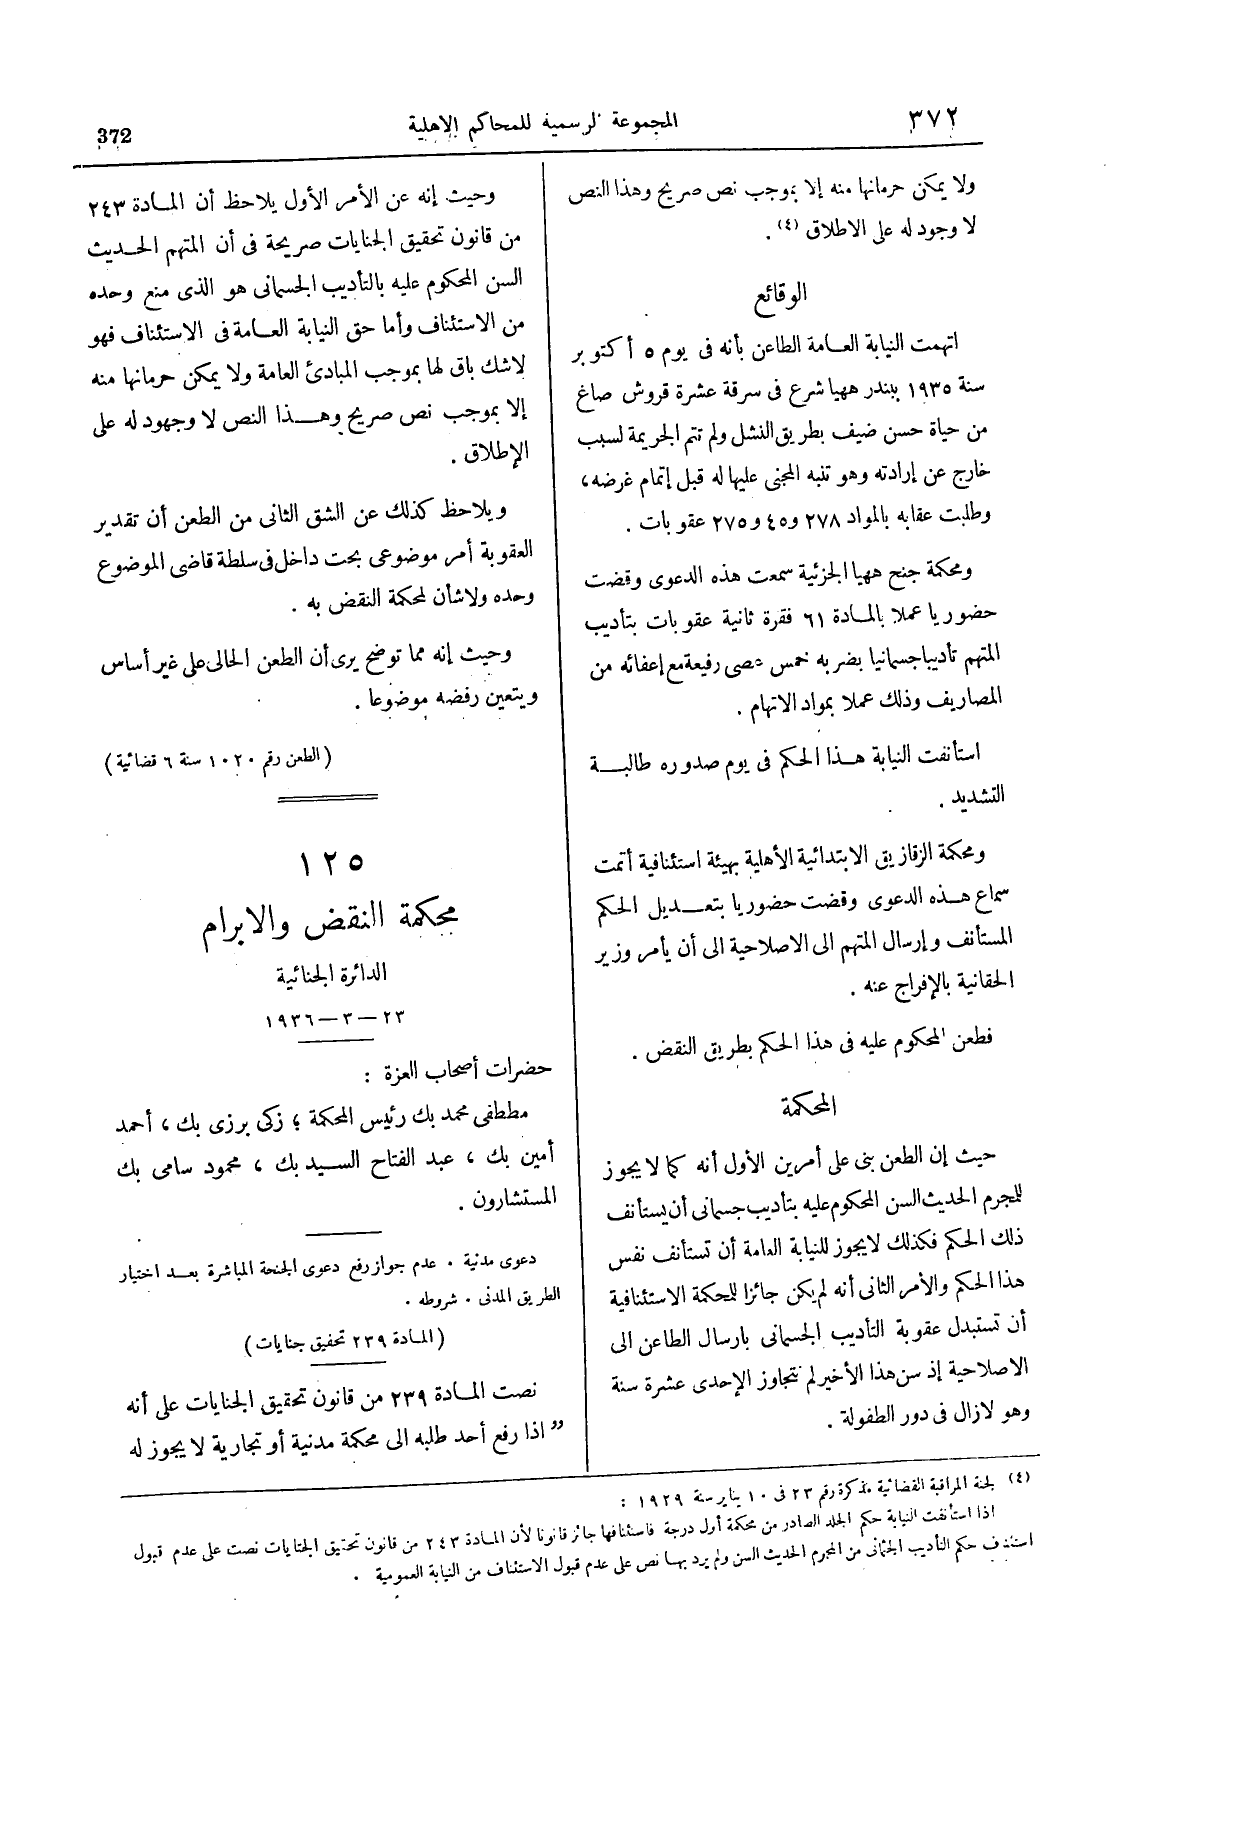 ٣٧٢
المجموعة الرسمية للمحاكم الاهلية
372
ولا يمكن حرمانها منه إلا بموجب نص صريح وهذا النص
لا وجود له على الاطلاق (٤) .
الوقائع
اتهمت النيابة العامة الطاعن بأنه فى يوم ٥ أكتوبر
سنة ١٩٣٥ ببندر ههيا شرع فى سرقة عشرة قروش صاغ
من حياة حسن ضيف بطريق النشل ولم تتم الجريمة لسبب
خارج عن إرادته وهو تنبه المجنى عليها له قبل إتمام غرضه ،
وطلبت عقابه بالمواد ٢٧٨ و ٤٥ و ٢٧٥ عقوبات .
ومحكمة جنح ههيا الجزئية سمعت هذه الدعوى وقضت
حضوريا عملا بالمادة ٦١ فقرة ثانية عقوبات بتأديب
المتهم تأديبا جسمانيا بضربه خمس عصى رفيعة مع إعفائه من
المصاريف وذلك عملا بمواد الاتهام .
استأنفت النيابة هذا الحكم فى يوم صدوره طالبة
التشديد .
ومحكمة الزقازيق الابتدائية الأهلية بهيئة استئنافية أتمت
سماع هذه الدعوى وقضت حضوريا بتعديل الحكم
المستأنف وإرسال المتهم الى الاصلاحية الى أن يأمر وزير
الحقانية بالإفراج عنه .
فطعن المحكوم عليه فى هذا الحكم بطريق النقض .
المحكمة
حيث إن الطعن بنى على أمرين الأول أنه كما لا يجوز
للمجرم الحديث السن المحكوم عليه بتأديب جسمانى أن يستأنف
ذلك الحكم فكذلك لا يجوز للنيابة العامة أن تستأنف نفس
هذا الحكم والأمر الثانى أنه لم يكن جائزا للمحكمة الاستئنافية
أن تستبدل عقوبة التأديب الجسمانى بارسال الطاعن الى
الاصلاحية إذ سن هذا الأخير لم تتجاوز الإحدى عشرة سنة
وهو لازال فى دور الطفولة .
وحيث إنه عن الأمر الأول يلاحظ أن المادة ٢٤٣
من قانون تحقيق الجنايات صريحة فى أن المتهم الحديث
السن المحكوم عليه بالتأديب الجسمانى هو الذى منع وحده
من الاستئناف وأما حق النيابة العامة فى الاستئناف فهو
لاشك باق لها بموجب المبادئ العامة ولا يمكن حرمانها منه
إلا بموجب نص صريح وهذا النص لا وجهود له على
الإطلاق .
ويلاحظ كذلك عن الشق الثانى من الطعن أن تقدير
العقوبة أمر موضوعى بحت داخل فى سلطة قاضى الموضوع
وحده ولاشأن لمحكمة النقض به .
وحيث إنه مما توضح يرى أن الطعن الحالى على غير أساس
ويتعين رفضه موضوعا .
(الطعن رقم ١٠٢٠ سنة ٦ قضائية)
١٢٥
محكمة النقض والابرام
الدائرة الجنائية
٢٣ — ٣ — ١٩٣٦
حضرات أصحاب العزة :
مططفى محمد بك رئيس المحكمة ؛ زكى برزى بك ، أحمد
أمين بك ، عبد الفتاح السيد بك ، محمود سامى بك
المستشارون .
دعوى مدنية . عدم جواز رفع دعوى الجنحة المباشرة بعد اختيار
الطريق المدنى . شروطه .
(المادة ٢٣٩ تحقيق جنايات)
نصت المادة ٢٣٩ من قانون تحقيق الجنايات على أنه
” اذا رفع أحد طلبه الى محكمة مدنية أو تجارية لا يجوز له
(٤) لجنة المراقبة القضائية مذكرة رقم ٢٣ فى ١٠ يناير سنة ١٩٢٩ :
اذا استأنفت النيابة حكم الجلد الصادر من محكمة أول درجة فاستئنافها جائز قانونا لأن المادة ٢٤٣ من قانون تحقيق الجنايات نصت على عدم قبول
استئناف حكم التأديب الجثمانى من المجرم الحديث السن ولم يرد بها نص على عدم قبول الاستئناف من النيابة العمومية .